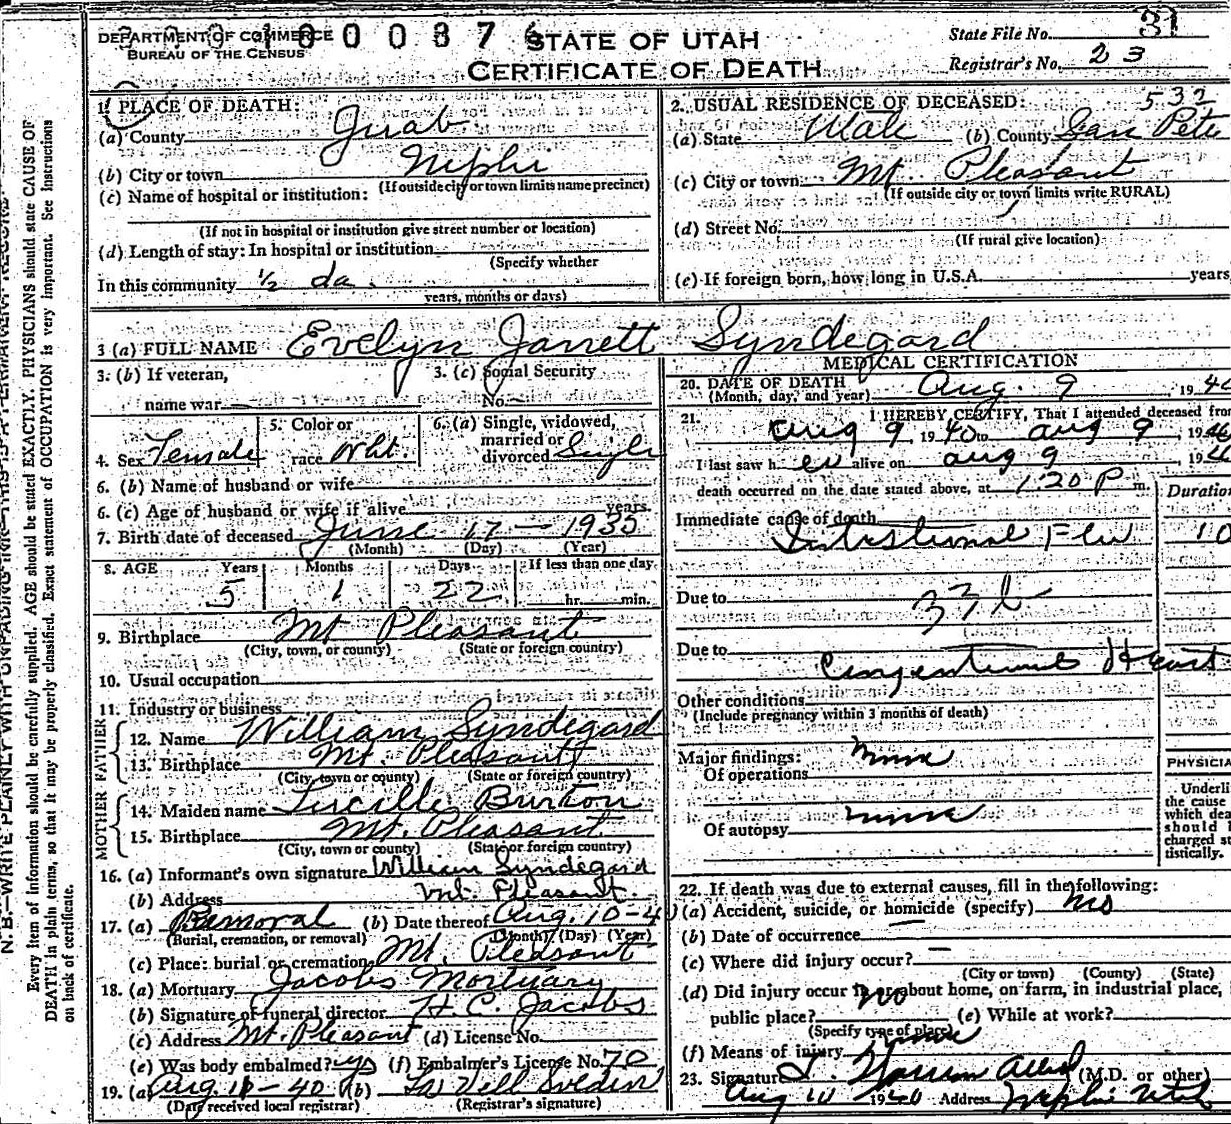 DEPARTMENT OF COMMERCE
BUREAU OF THE CENSUS
STATE OF UTAH
CERTIFICATE OF DEATH
State File No. 31
Registrar's No. 23
N. B.—WRITE PLAINLY WITH UNFADING INK—THIS IS A PERMANENT RECORD
Every item of information should be carefully supplied. AGE should be stated EXACTLY. PHYSICIANS should state CAUSE OF
DEATH in plain terms, so that it may be properly classified. Exact statement of OCCUPATION is very important. See Instructions
on back of certificate.
1. PLACE OF DEATH:
(a) County Juab
(b) City or town Nephi
(If outside city or town limits name precinct)
(c) Name of hospital or institution:
(If not in hospital or institution give street number or location)
(d) Length of stay: In hospital or institution
(Specify whether
In this community ½ da.
years, months or days)
2. USUAL RESIDENCE OF DECEASED: 532
(a) State Utah (b) County San Pete
(c) City or town Mt. Pleasant
(If outside city or town limits write RURAL)
(d) Street No.
(If rural give location)
(e) If foreign born, how long in U.S.A. years
3 (a) FULL NAME Evelyn Jarrett Syndegard
3. (b) If veteran,
name war
3. (c) Social Security
No.
4. Sex Female
5. Color or
race Wht.
6. (a) Single, widowed,
married or
divorced Single
6. (b) Name of husband or wife
6. (c) Age of husband or wife if alive years.
7. Birth date of deceased June 17 - 1935
(Month) (Day) (Year)
8. AGE Years Months Days If less than one day
5 1 22 hr. min.
9. Birthplace Mt Pleasant
(City, town, or county) (State or foreign country)
10. Usual occupation
11. Industry or business
FATHER
12. Name William Syndegard
13. Birthplace Mt. Pleasant
(City, town or county) (State or foreign country)
MOTHER
14. Maiden name Lucille Burton
15. Birthplace Mt. Pleasant
(City, town or county) (State or foreign country)
16. (a) Informant's own signature William Syndegard
(b) Address Mt. Pleasant.
17. (a) Removal (b) Date thereof Aug. 10-4
(Burial, cremation, or removal) (Month) (Day) (Year)
(c) Place: burial or cremation Mt. Pleasant
18. (a) Mortuary Jacobs Mortuary
(b) Signature of funeral director H. C. Jacobs
(c) Address Mt. Pleasant (d) License No.
(e) Was body embalmed? yes (f) Embalmer's License No. 70
19. (a) Aug. 11-40 (b)
(Date received local registrar) (Registrar's signature)
MEDICAL CERTIFICATION
20. DATE OF DEATH
(Month, day, and year) Aug. 9, 1940
21. I HEREBY CERTIFY, That I attended deceased from
Aug 9, 1940 to Aug 9, 1940
I last saw her alive on Aug 9 194
death occurred on the date stated above, at 1:20 P m.
Duration
Immediate cause of death
Intestional Flu 10
Due to 33 b
Due to
Congentional Heart
Other conditions
(Include pregnancy within 3 months of death)
Major findings:
Of operations none
Of autopsy none
PHYSICIA
Underli
the cause
which dea
should
charged st
tistically.
22. If death was due to external causes, fill in the following:
(a) Accident, suicide, or homicide (specify) no
(b) Date of occurrence —
(c) Where did injury occur? —
(City or town) (County) (State)
(d) Did injury occur in or about home, on farm, in industrial place,
public place? no (e) While at work?
(Specify type of place)
(f) Means of injury none
23. Signature (M.D. or other)
Aug 10 1940 Address Nephi Utah